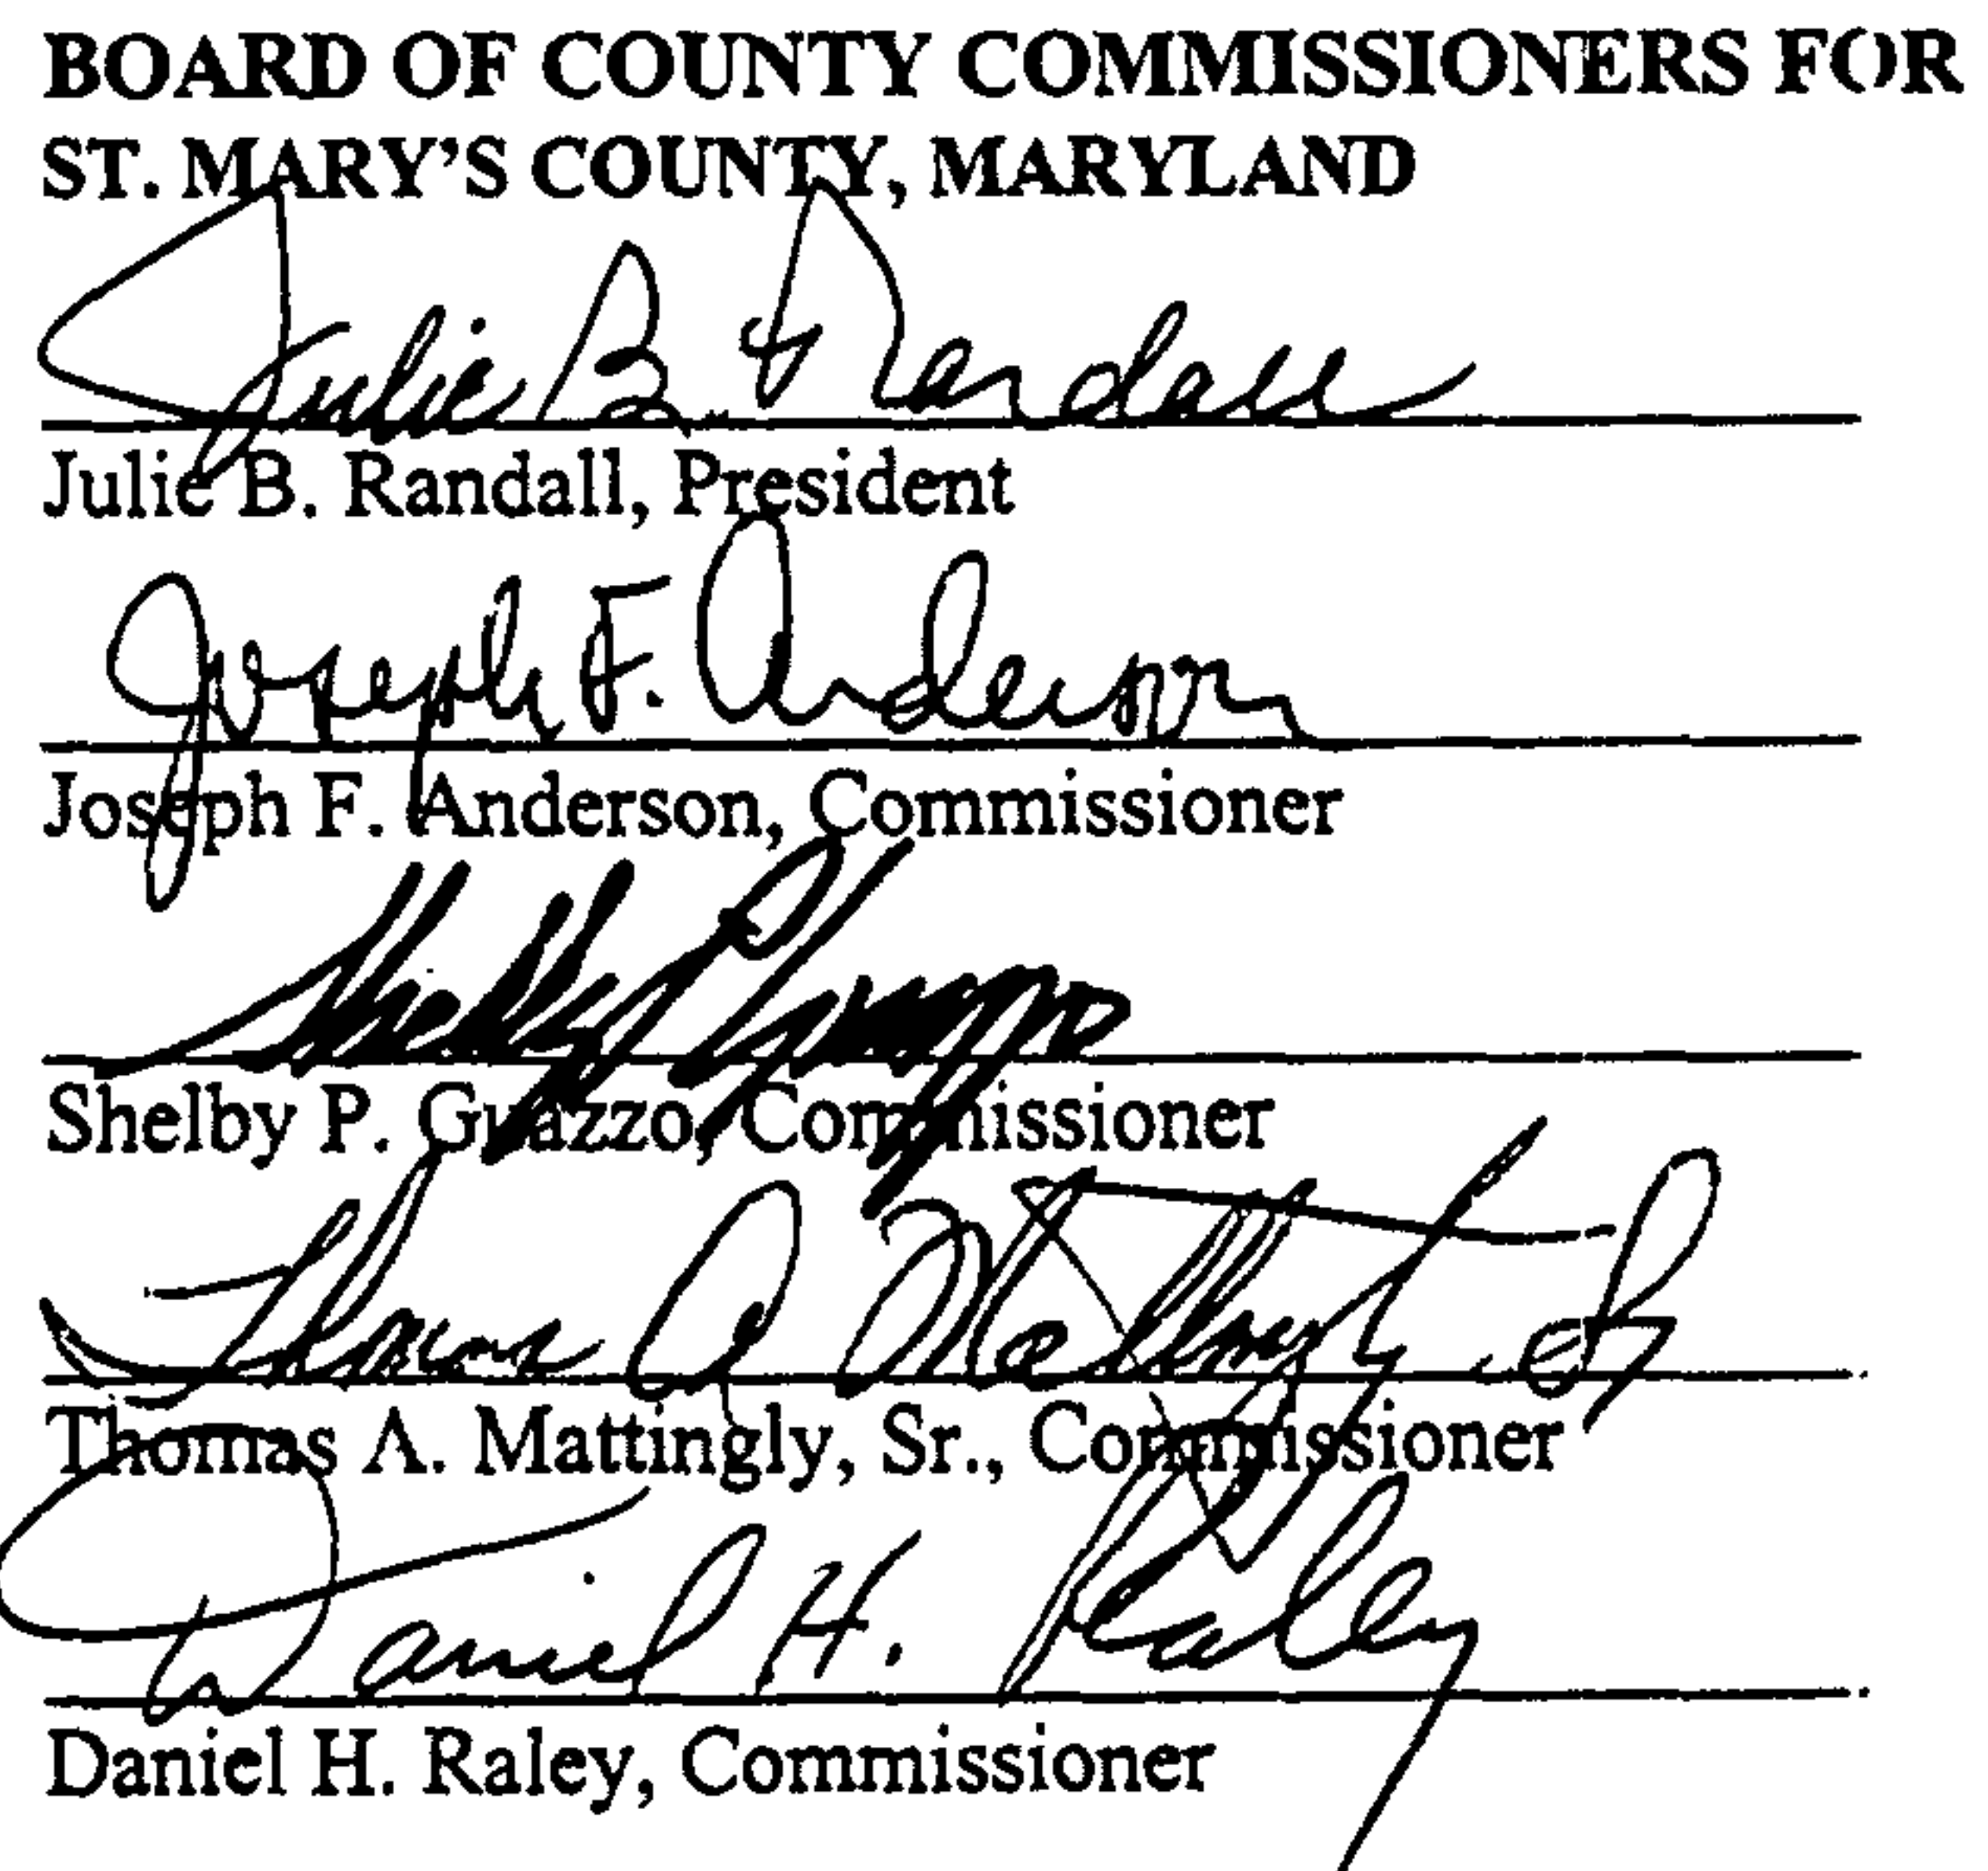 BOARD OF COUNTY COMMISSIONERS FOR
ST. MARY'S COUNTY, MARYLAND
Julie B. Randall
Julie B. Randall, President
Joseph F. Anderson
Joseph F. Anderson, Commissioner
Shelby P. Guazzo
Shelby P. Guazzo, Commissioner
Thomas A. Mattingly, Sr.
Thomas A. Mattingly, Sr., Commissioner
Daniel H. Raley
Daniel H. Raley, Commissioner